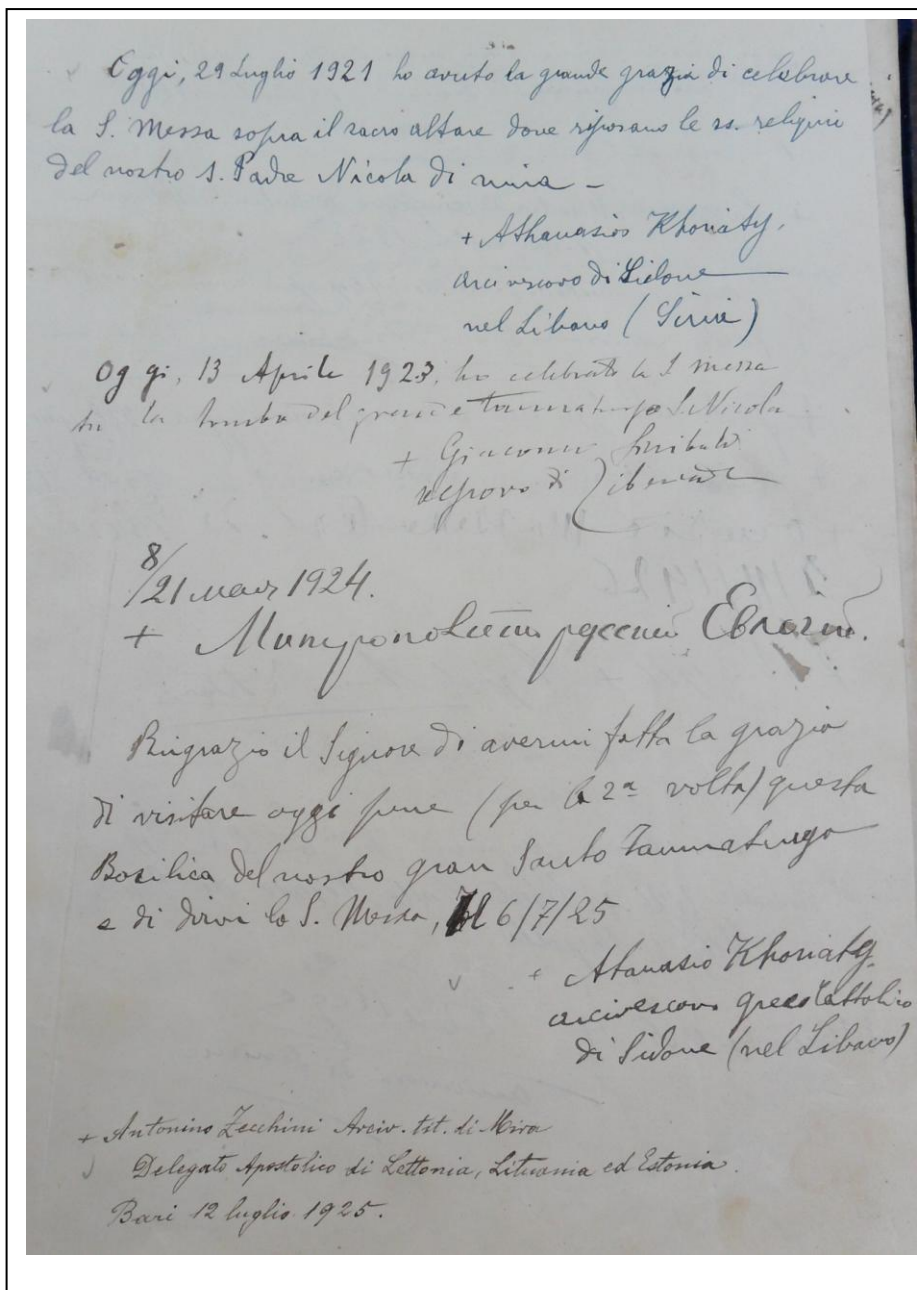 Oggi, 29 Luglio 1921 ho avuto la grande grazia di celebrare
la S. Messa sopra il sacro altare dove riposano le ss. reliquie
del nostro S. Padre Nicola di mira –
+ Athanasios Khoriaty,
arcivescovo di Sidone
nel Libano (Siria)
Oggi, 13 Aprile 1923, ho celebrato la S messa
su la tomba del grande taumaturgo S. Nicola
+ Giacomo Sinibaldi
vescovo di Tiberiade
8/21 мая 1924.
+ Митрополитъ русский Евлогий.
Ringrazio il Signore di avermi fatta la grazia
di visitare oggi pure (per la 2ª volta) questa
Basilica del nostro gran Santo Taumaturgo
e di dirvi la S. Messa, Il 6/7/25
+ Atanasio Khoriaty
arcivescovo greco cattolico
di Sidone (nel Libano)
+ Antonino Zecchini Arciv. tit. di Mira
Delegato Apostolico di Lettonia, Lituania ed Estonia.
Bari 12 luglio 1925.